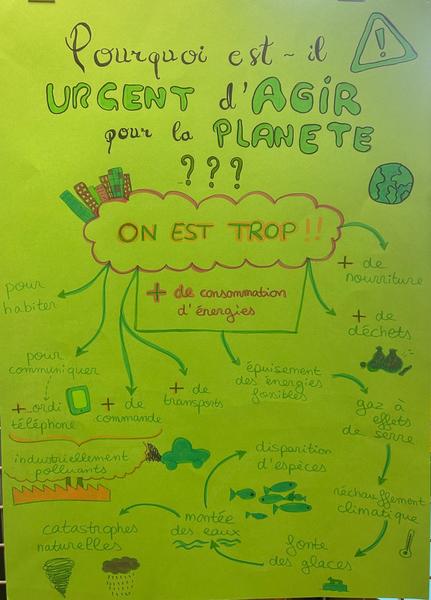 Pourquoi est-il
URGENT d'AGIR
pour la PLANETE
???
ON EST TROP !!
+ de consommation
d'énergies
+ de
nourriture
+ de
déchets
pour
habiter
pour
communiquer
+ ordi
téléphone
+ de
commande
+ de
transports
épuisement
des énergies
fossiles
gaz à
effets
de serre
industriellement
polluants
disparition
d'espèces
réchauffement
climatique
catastrophes
naturelles
montée
des eaux
fonte
des glaces